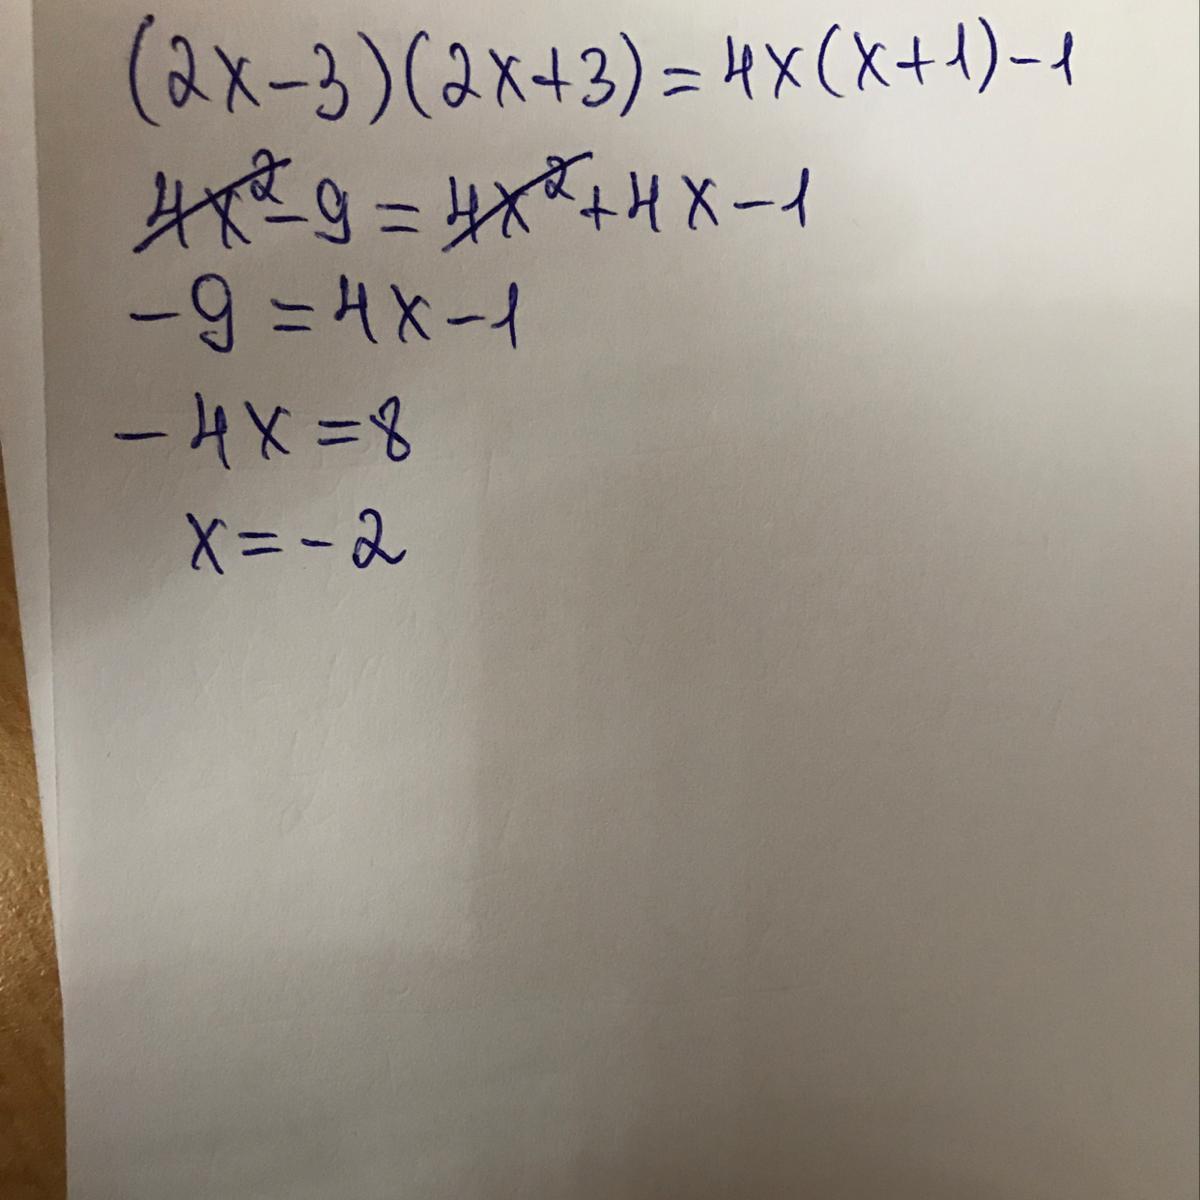 (2x-3)(2x+3)=4x(x+1)-1
4x²-9=4x²+4x-1
-9=4x-1
-4x=8
x=-2